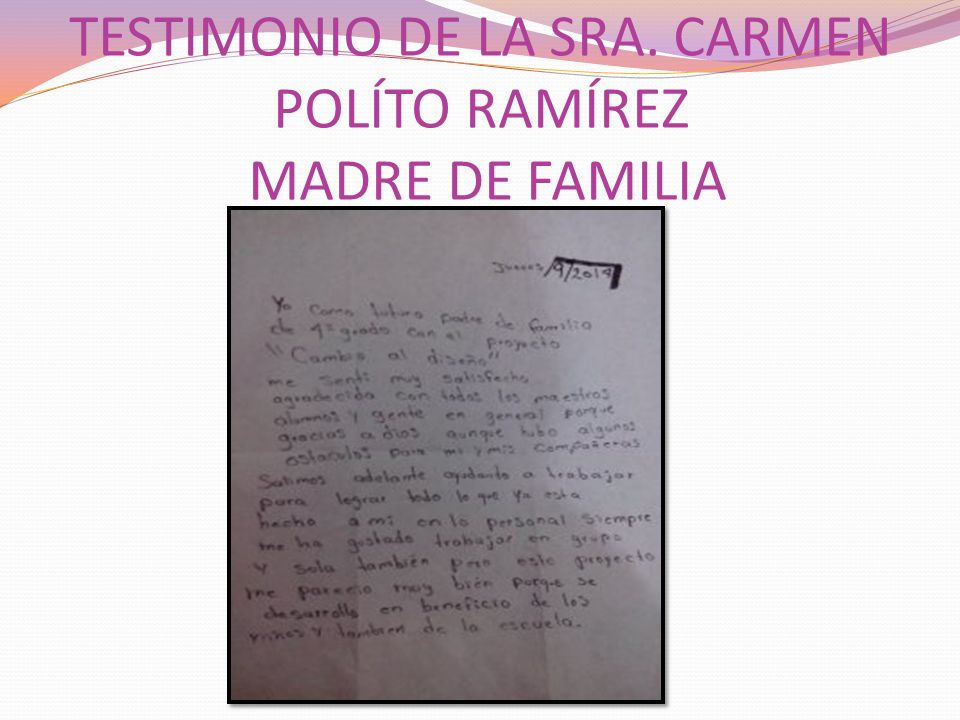 TESTIMONIO DE LA SRA. CARMEN
POLÍTO RAMÍREZ
MADRE DE FAMILIA
Jueves/9/2014
Yo como tuturo padre de familia
de 4º grado con el proyecto
"Cambio al diseño"
me senti muy satisfecho
agradecida con todos los maestros
alumnos y gente en general porque
gracias a dios aunque hubo algunos
ostaculos para mi y mis compañeras
Salimos adelante ayudando a trabajar
para lograr todo lo que ya esta
hecho a mi en lo personal siempre
me ha gustado trabajar en grupo
y sola también pero este proyecto
me parecio muy bién porque se
desarrollo en beneficio de los
niños y tambien de la escuela.